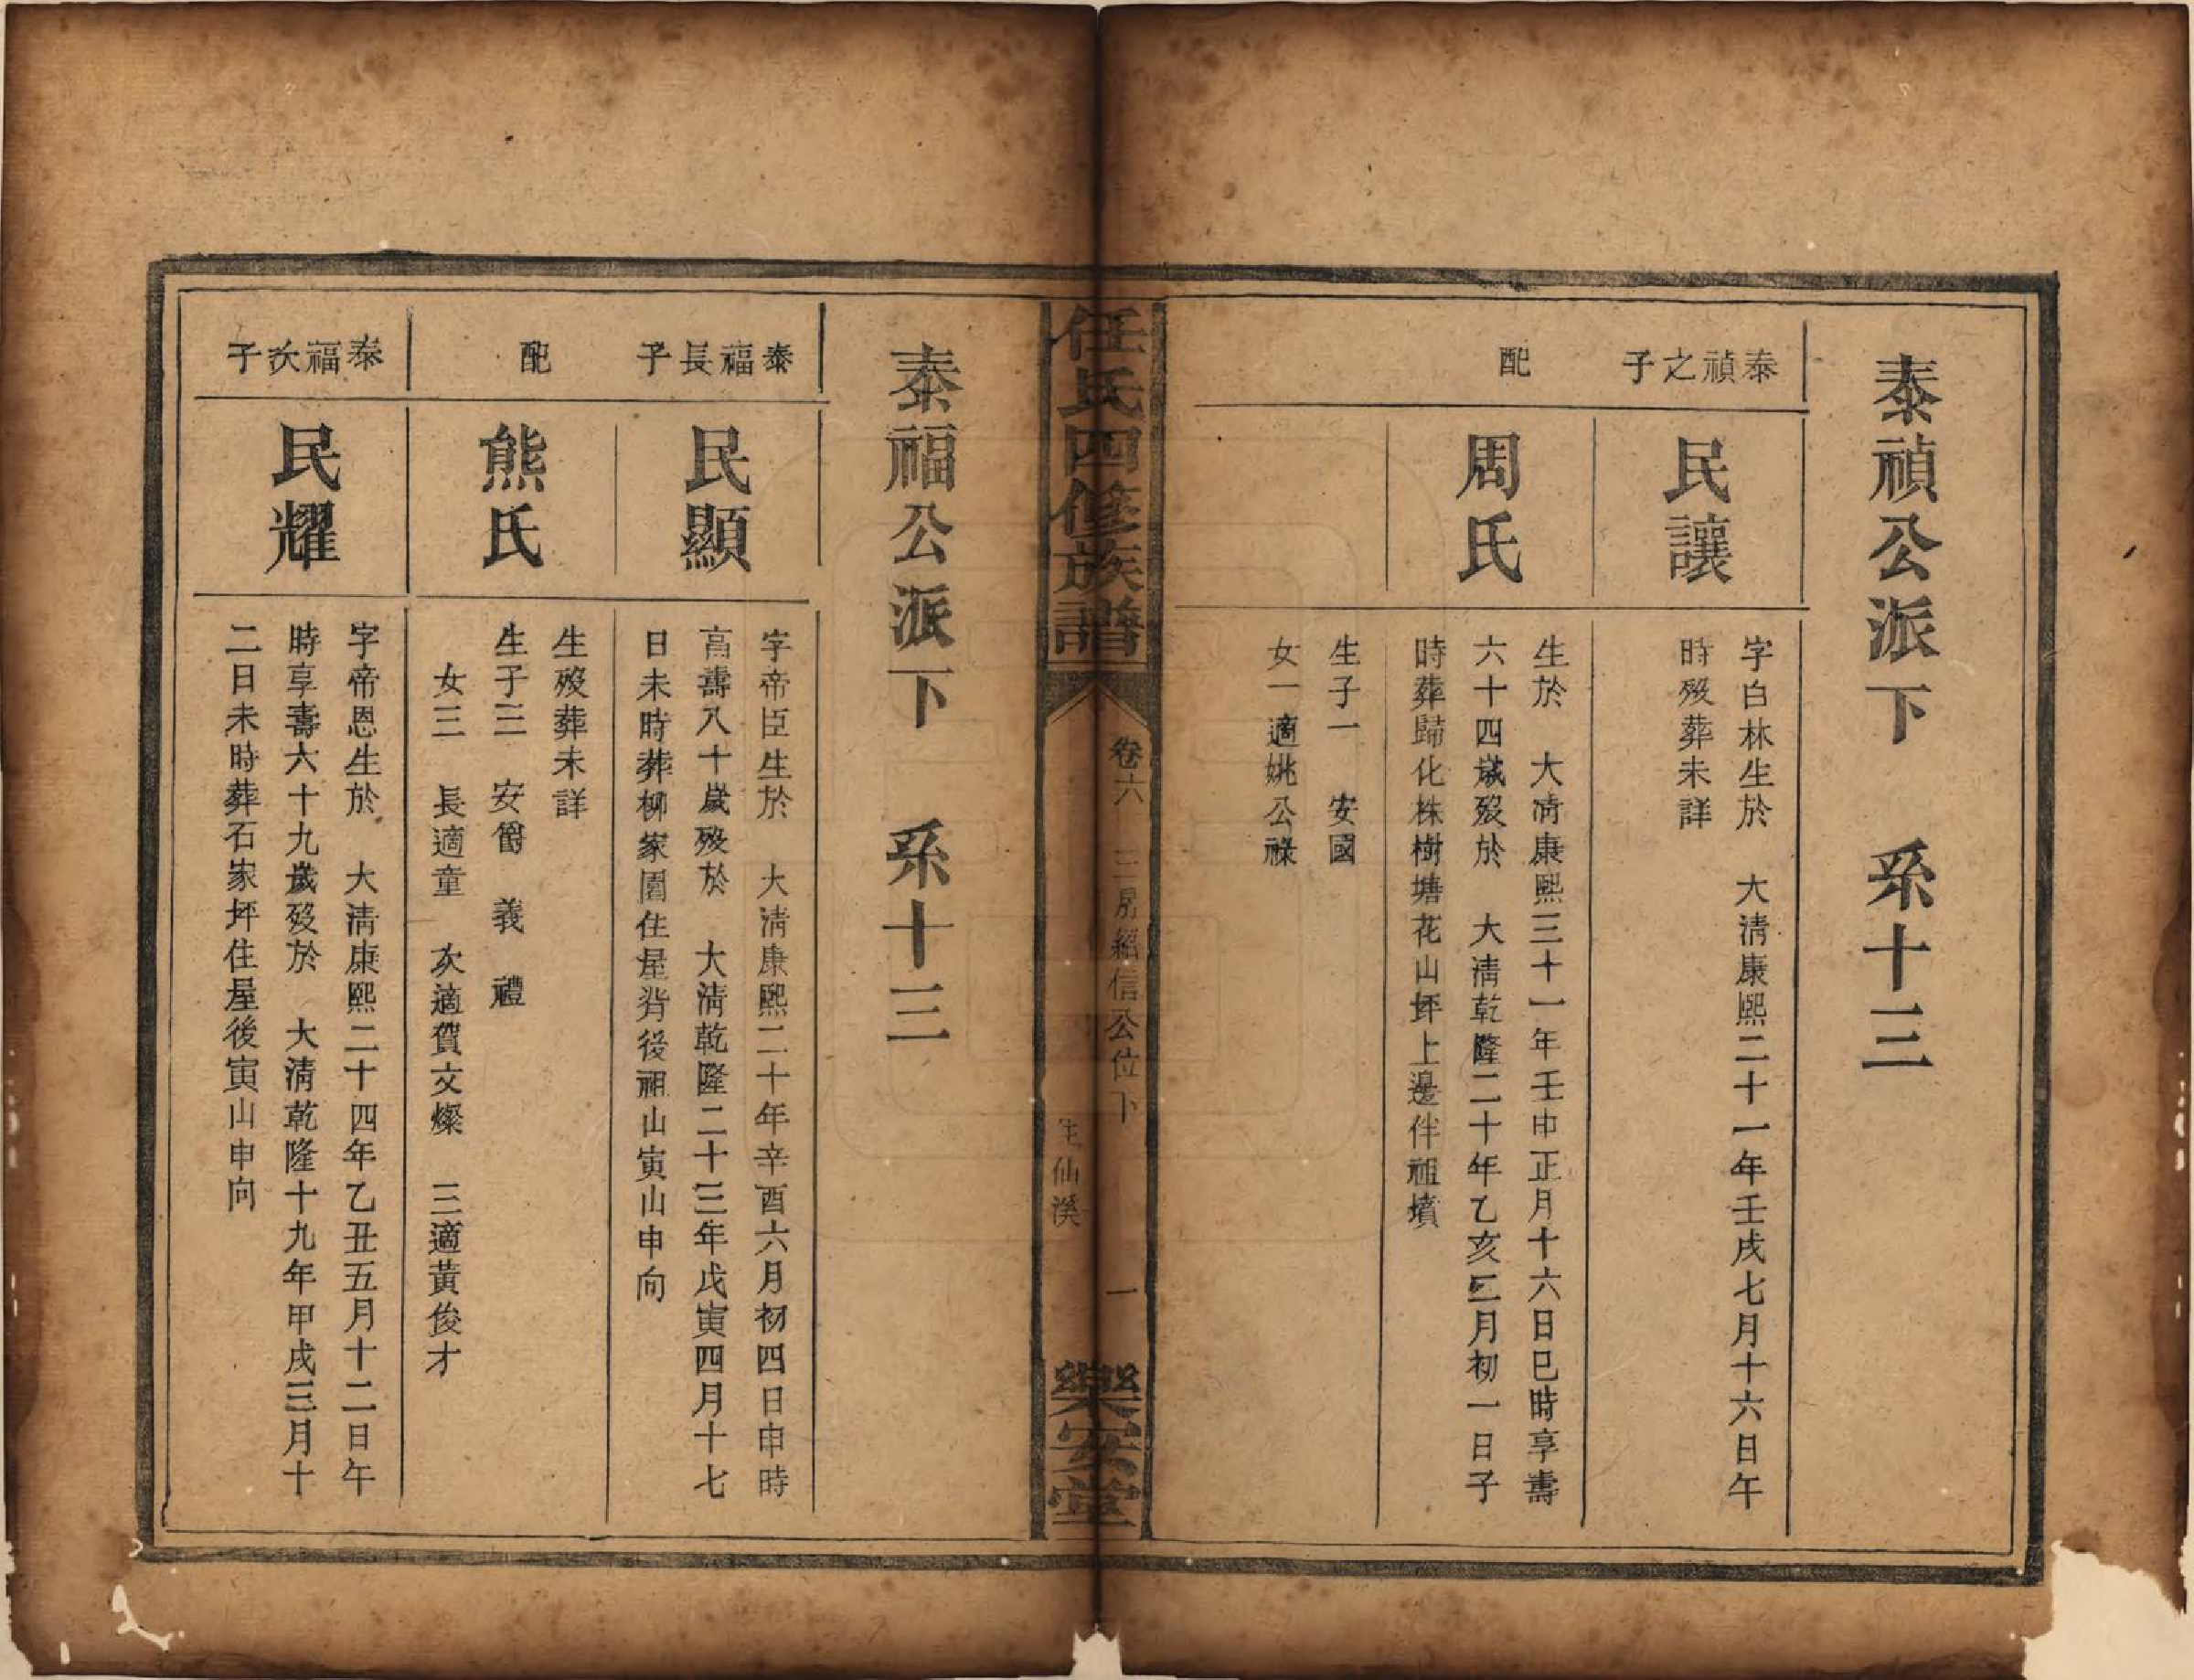 泰禎公派下　系十三
泰禎之子
民讓
字白林生於　大清康熙二十一年壬戌七月十六日午
時歿葬未詳
配
周氏
生於　大清康熙三十一年壬申正月十六日巳時享壽
六十四歲歿於　大清乾隆二十年乙亥三月初一日子
時葬歸化株樹塘花山坪上邊伴祖墳
生子一　安國
女一適姚公祿
任氏四修族譜
卷六　三房紹信公位下　一
仙溪
樂安堂
泰福公派下　系十三
泰福長子
民顯
字帝臣生於　大清康熙二十年辛酉六月初四日申時
高壽八十歲歿於　大清乾隆二十三年戊寅四月十七
日未時葬柳家園住屋背後祖山寅山申向
配
熊氏
生歿葬未詳
生子三　安爵　義　禮
女三　長適童　次適賀文燦　三適黃俊才
泰福次子
民耀
字帝恩生於　大清康熙二十四年乙丑五月十二日午
時享壽六十九歲歿於　大清乾隆十九年甲戌三月十
二日未時葬石家坪住屋後寅山申向